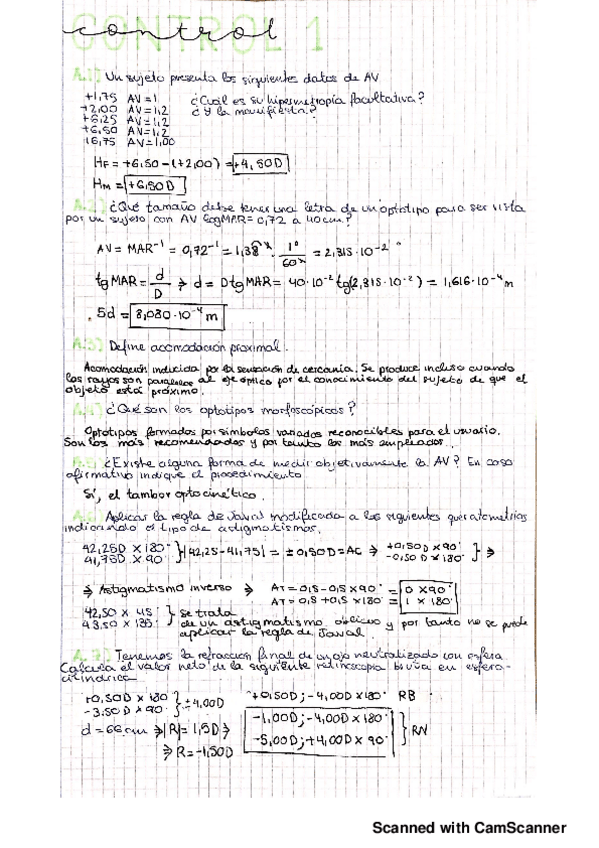 CONTROL 1
control
A.1) Un sujeto presenta los siguientes datos de AV
+1,75 AV=1 ¿Cuál es su hipermetropía facultativa?
+2,00 AV=1,2 ¿Y la manifiesta?
+6,25 AV=1,2
+6,50 AV=1,2
+6,75 AV=1,00
HF = +6,50 - (+2,00) = +4,50D
HM = +6,50 D
A.2) ¿Qué tamaño debe tener una letra de un optotipo para ser vista
por un sujeto con AV logMAR = 0,72 a 40cm?
AV = MAR⁻¹ = 0,72⁻¹ = 1,38' · 1°/60' = 2,315·10⁻² °
tg MAR = d/D → d = D tg MAR = 40·10⁻² tg(2,315·10⁻²) = 1,616·10⁻⁴ m
5d = 8,080·10⁻⁴ m
A.3) Define acomodación proximal.
Acomodación inducida por la sensación de cercanía. Se produce incluso cuando
los rayos son paralelos al eje óptico por el conocimiento del sujeto de que el
objeto está próximo.
A.4) ¿Qué son los optotipos morfoscópicos?
Optotipos formados por símbolos variados reconocibles para el usuario.
Son los más recomendados y por tanto los más empleados.
A.5) ¿Existe alguna forma de medir objetivamente la AV? En caso
afirmativo indique el procedimiento
Sí, el tambor optocinético.
A.6) Aplicar la regla de Javal modificada a los siguientes queratometrías
indicando el tipo de astigmatismos.
42,25D x 180° } |42,25-41,75| = ±0,50D = AC → +0,50 D x 90° } →
41,75D x 90° -0,50 D x 180°
→ Astigmatismo inverso → AT = 0,5 - 0,5 x 90° = 0 x 90°
AT = 0,5 + 0,5 x 180° = 1 x 180°
42,50 x 45° } se trata
43,50 x 135° de un astigmatismo oblicuo y por tanto no se puede
aplicar la regla de Javal.
A.7) Tenemos la refracción final de un ojo neutralizado con esfera.
Calcula el valor neto de la siguiente retinoscopia bruta en esfero-
cilíndrica
+0,50D x 180 } ±4,00D +0,50D; -4,00D x 180° RB
-3,50D x 90
d = 66cm → |R| = 1,5D → -1,00D; -4,00D x 180° } RN
-5,00D; +4,00D x 90°
→ R = -1,50D
Scanned with CamScanner